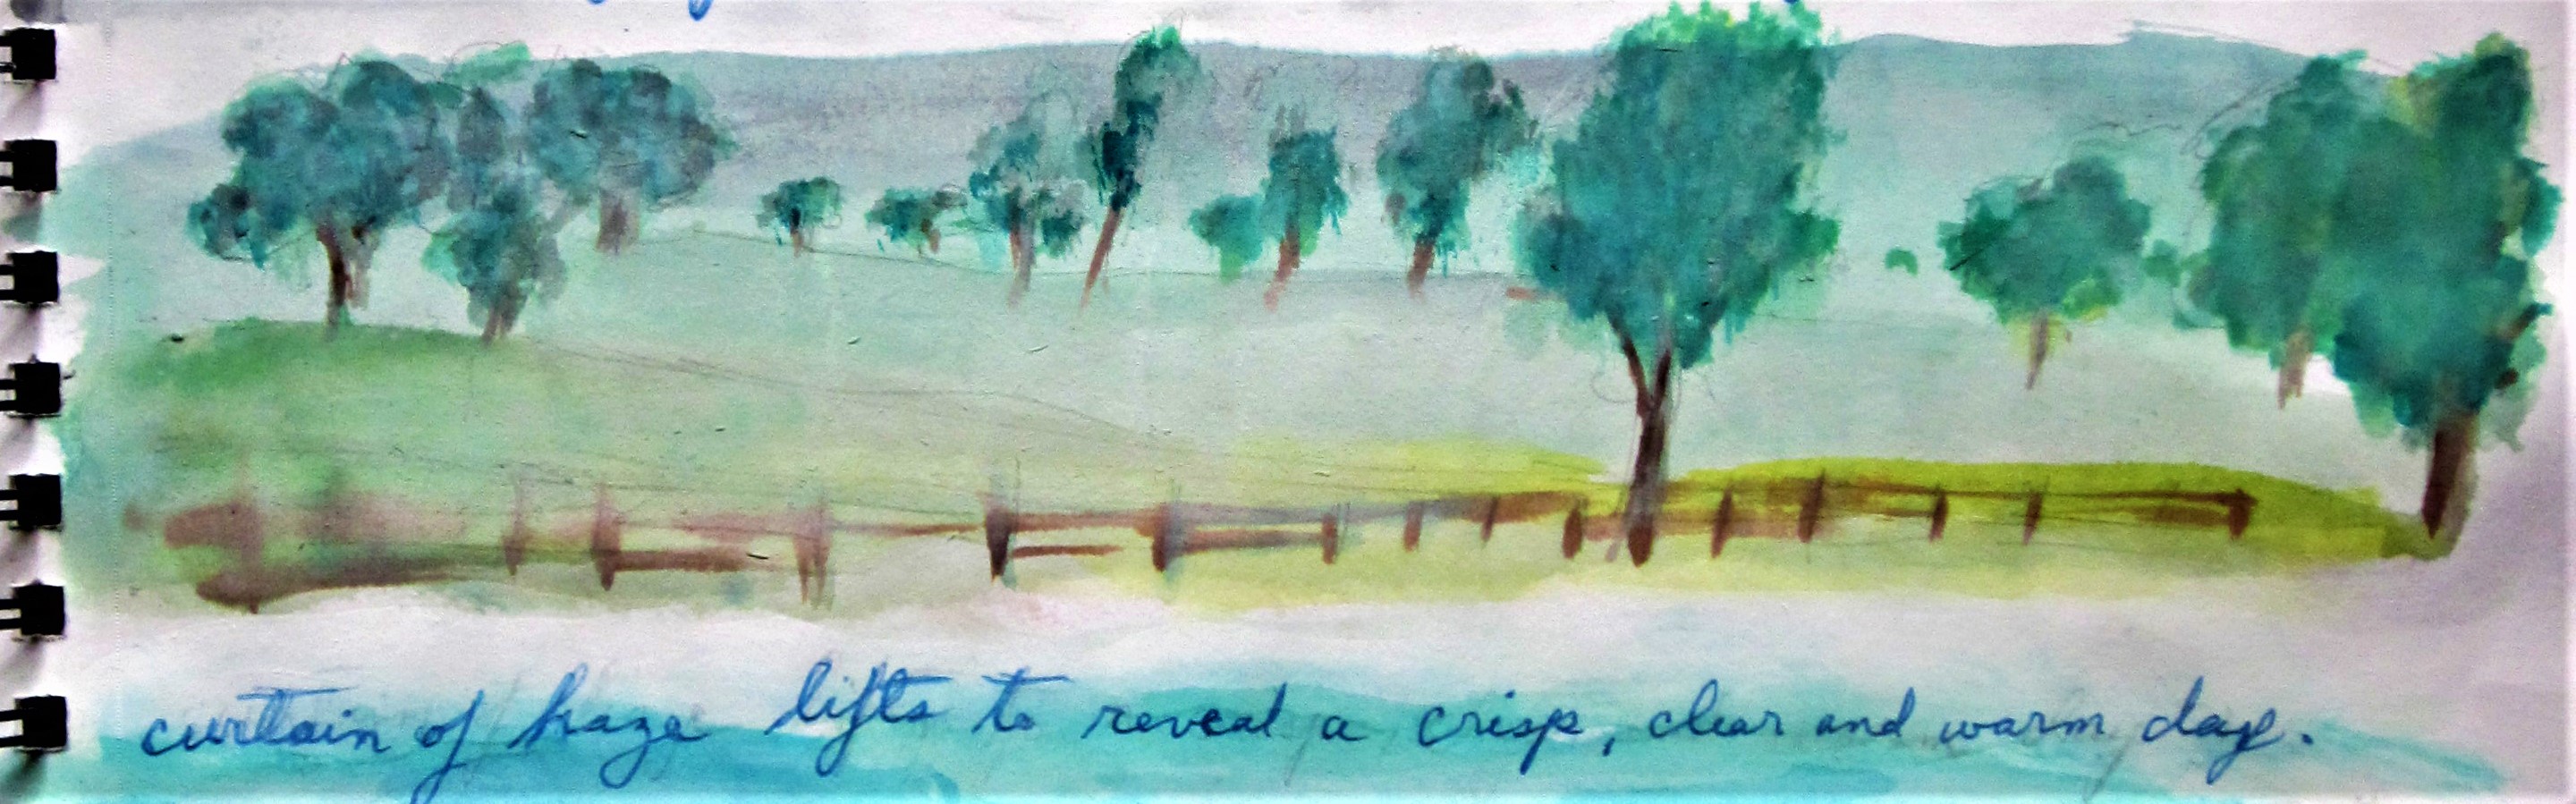 curtain of haze lifts to reveal a crisp, clear and warm day.